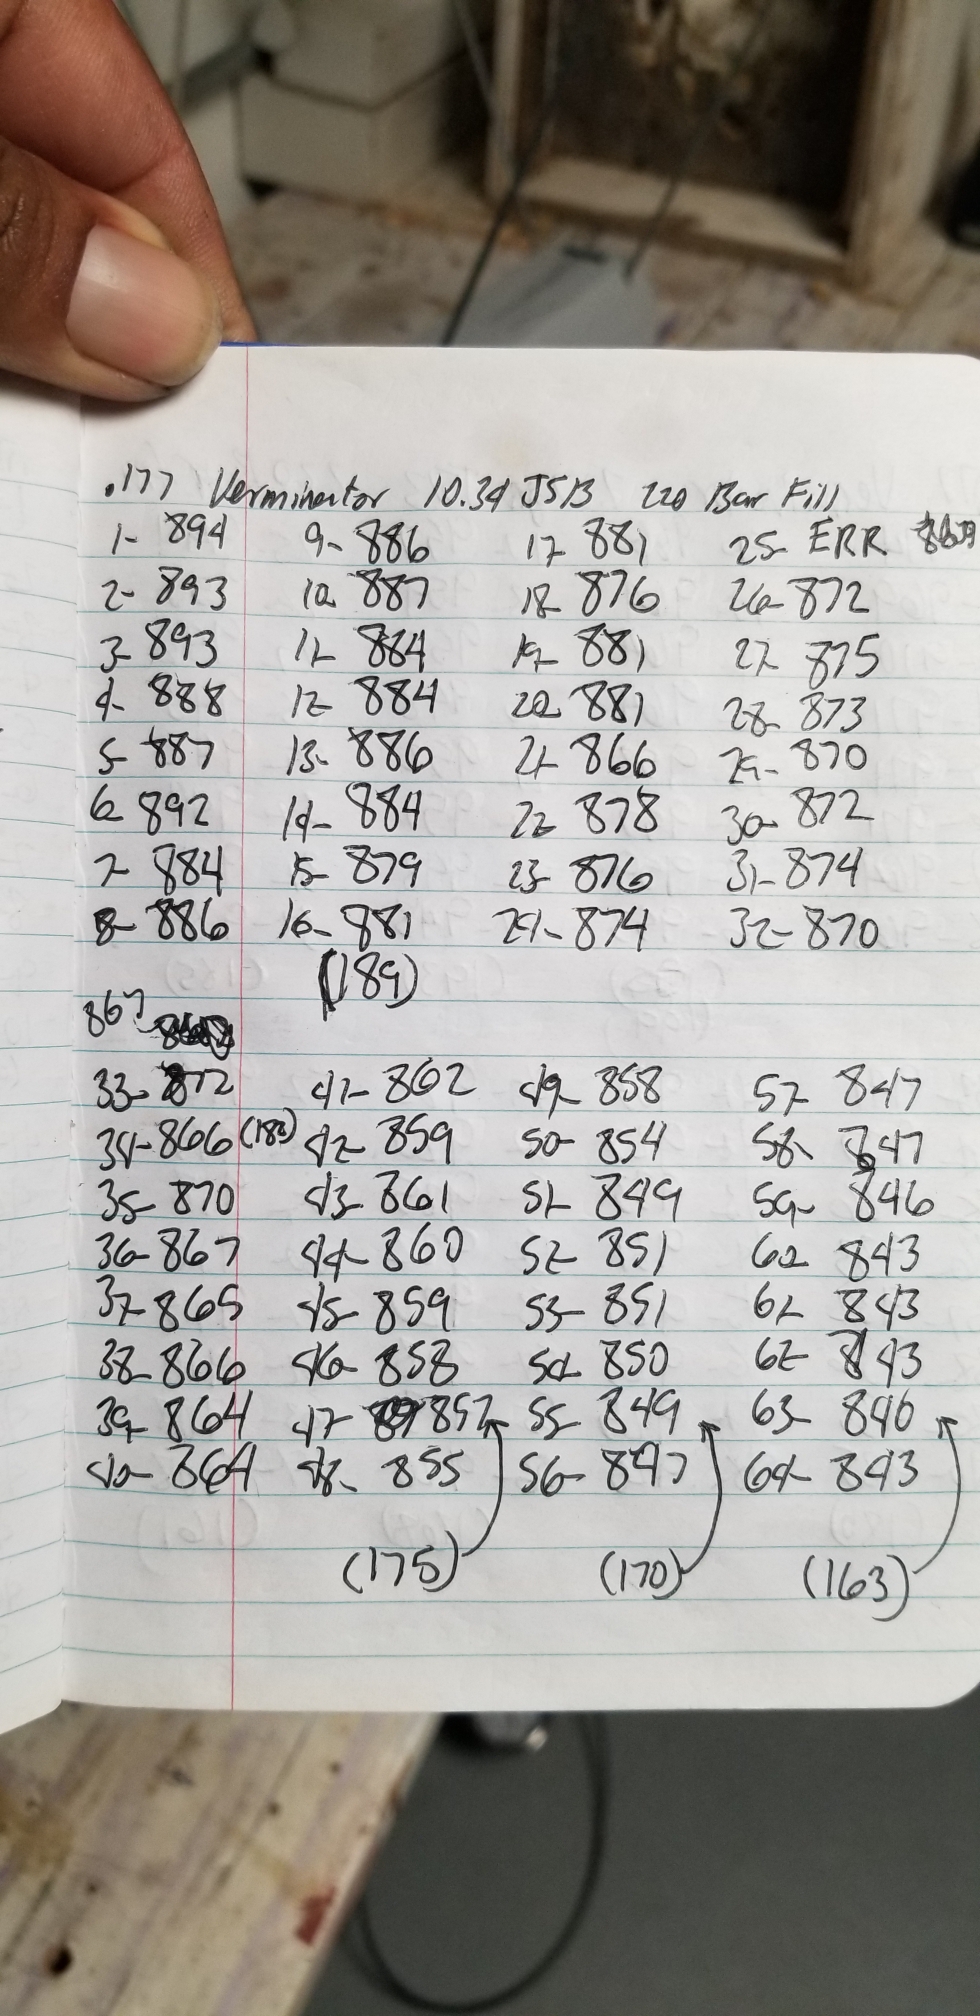 .177 Verminator 10.34 JSB 220 Bar Fill
1- 894 9- 886 17- 881 25- ERR
2- 893 10- 887 18- 876 26- 872
3- 893 11- 884 19- 881 27- 875
4- 888 12- 884 20- 881 28- 873
5- 887 13- 886 21- 866 29- 870
6- 892 14- 884 22- 878 30- 872
7- 884 15- 879 23- 876 31- 874
8- 886 16- 881 24- 874 32- 870
(189)
867
33- 872 41- 862 49- 858 57- 847
34- 866 42- 859 50- 854 58- 847
35- 870 43- 861 51- 849 59- 846
36- 867 44- 860 52- 851 60- 843
37- 865 45- 859 53- 851 61- 843
38- 866 46- 858 54- 850 62- 843
39- 864 47- 857 55- 849 63- 840
40- 864 48- 855 56- 847 64- 843
(175) (170) (163)